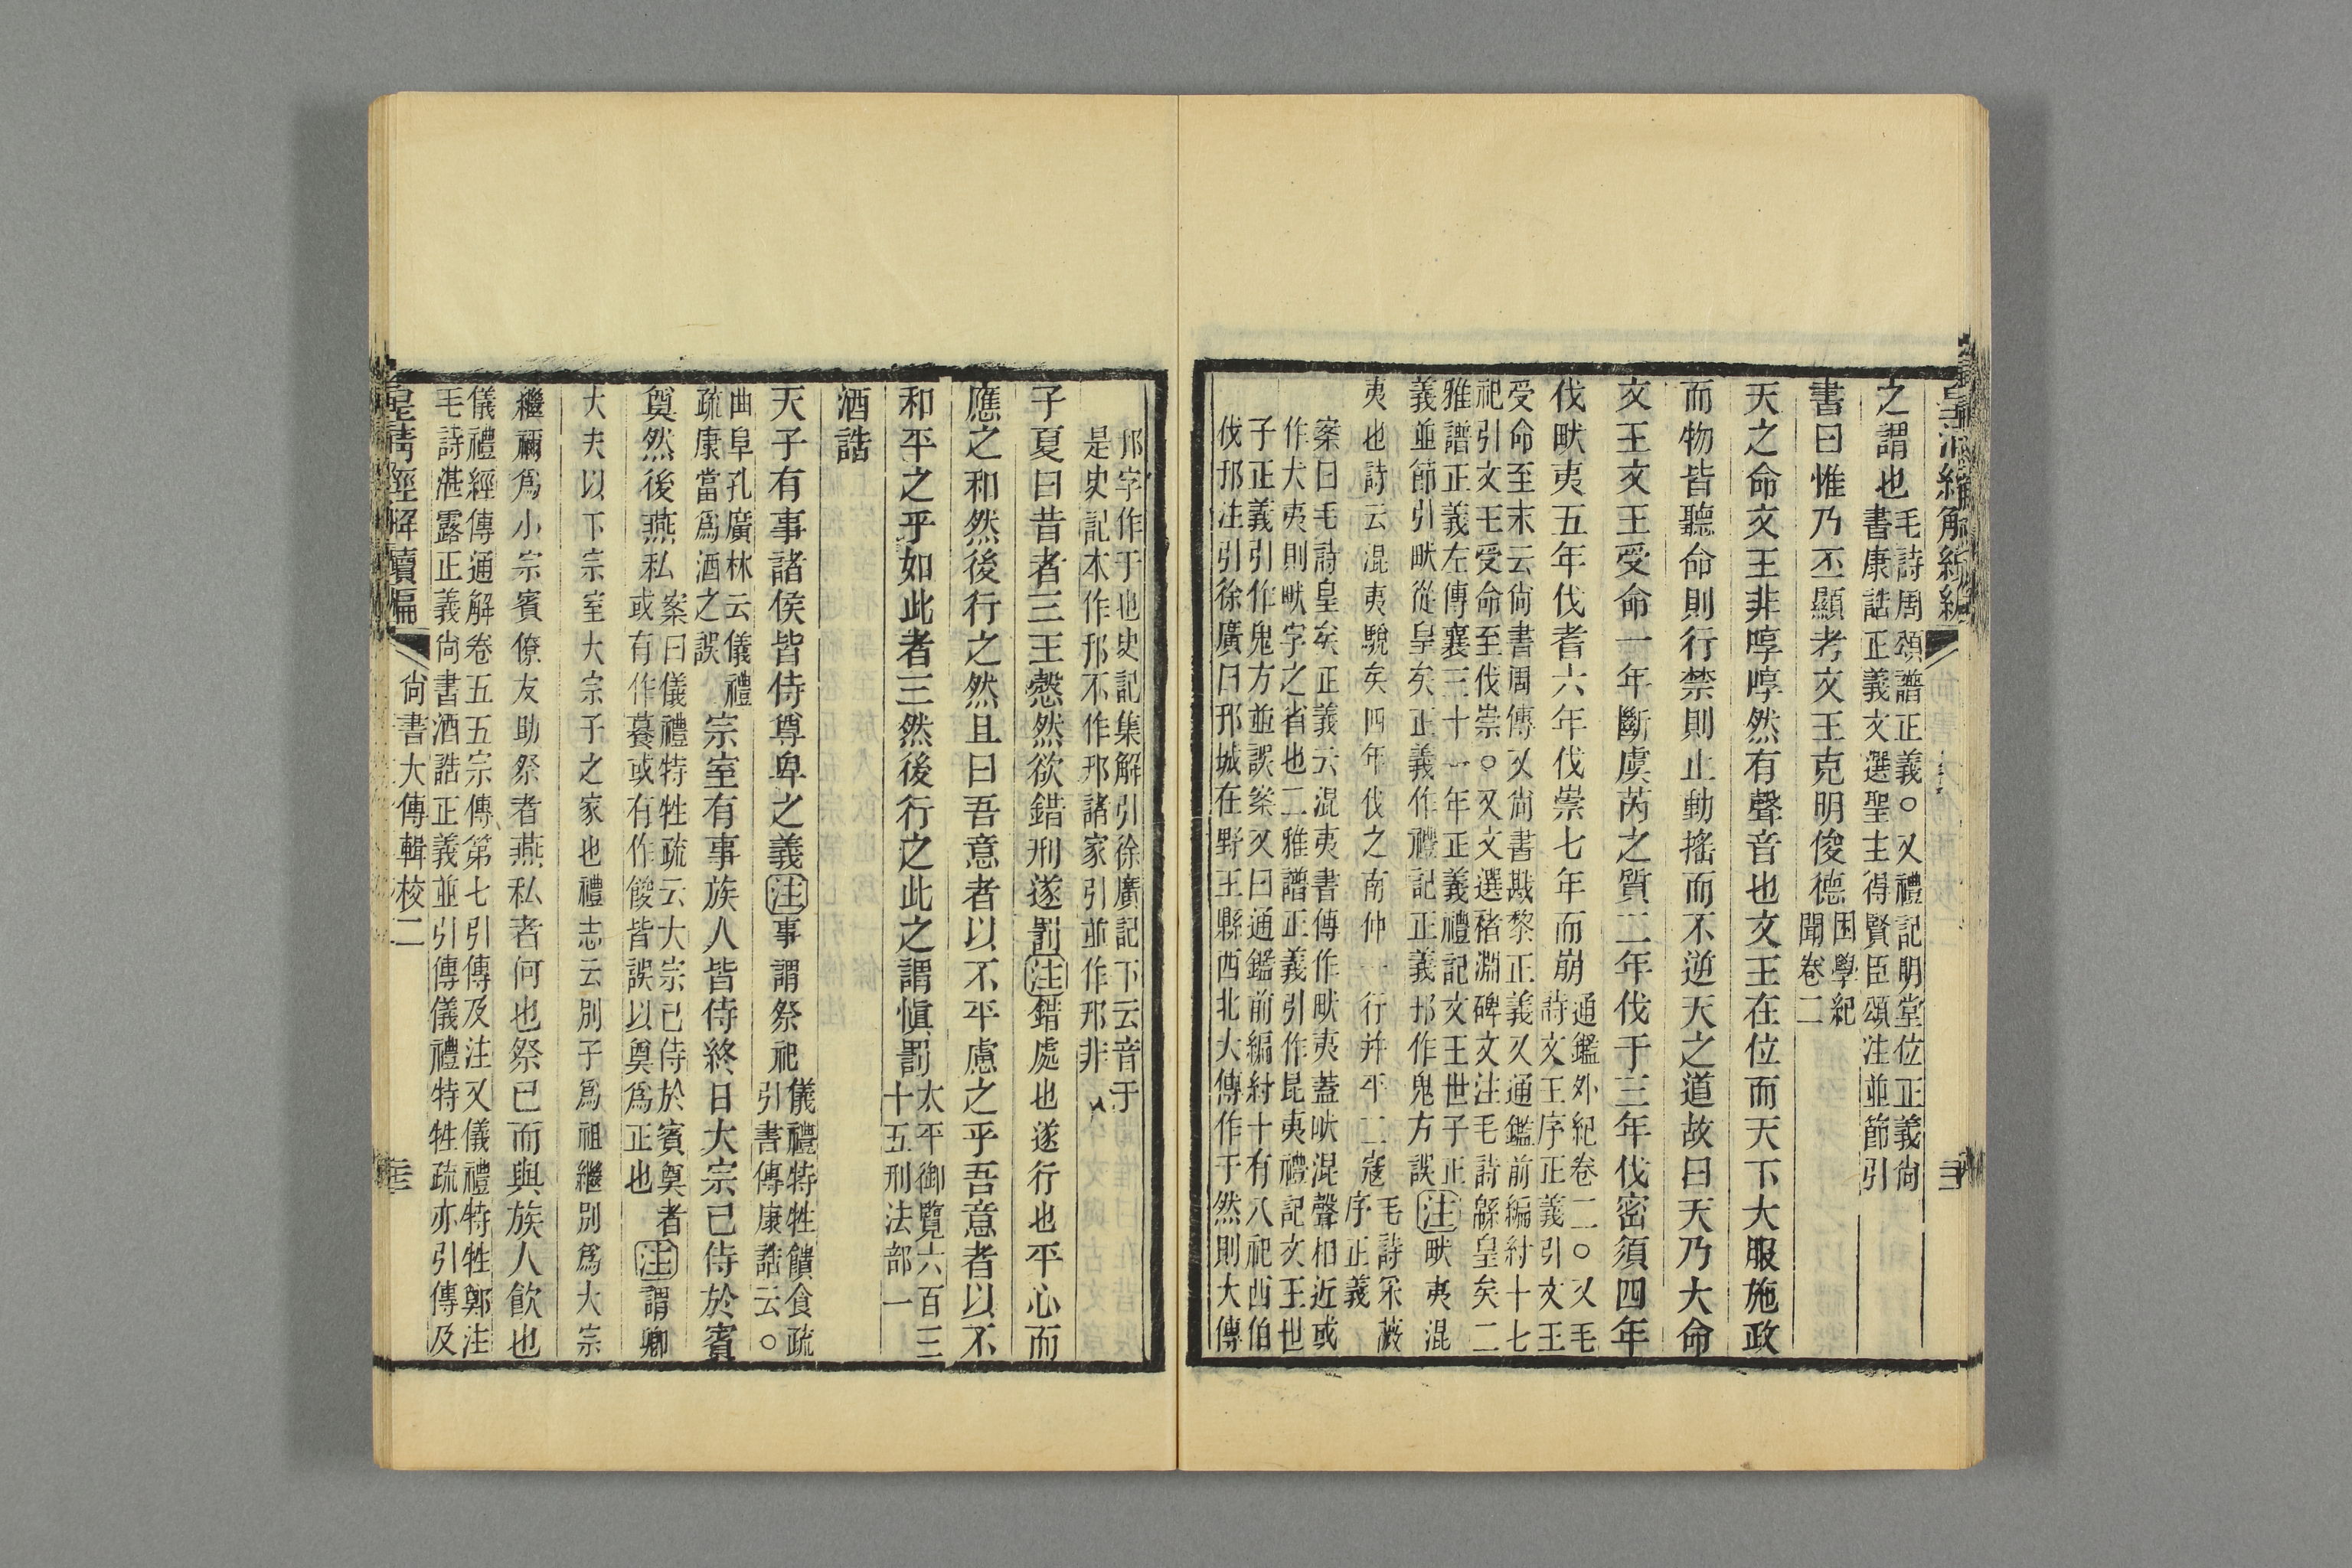 皇清經解續編
之謂也毛詩周頌譜正義○又禮記明堂位正義尚
書康誥正義文選聖主得賢臣頌注並節引
書曰惟乃丕顯考文王克明俊德困學紀
聞卷二
天之命文王非啍啍然有聲音也文王在位而天下大服施政
而物皆聽命則行禁則止動搖而不逆天之道故曰天乃大命
文王文王受命一年斷虞芮之質二年伐于三年伐密須四年
伐畎夷五年伐耆六年伐崇七年而崩通鑑外紀卷二○又毛
詩文王序正義引文王
受命至末云尚書周傳又尚書戡黎正義又通鑑前編紂十七
祀引文王受命至伐崇○又文選褚淵碑文注毛詩緜皇矣二
雅譜正義左傳襄三十一年正義禮記文王世子正
義並節引畎從皇矣正義作禮記正義邘作鬼方誤注畎夷混
夷也詩云混夷駾矣四年伐之南仲一行并平二寇毛詩采薇
序正義
案曰毛詩皇矣正義云混夷書傳作畎夷蓋畎混聲相近或
作犬夷則畎字之省也二雅譜正義引作昆夷禮記文王世
子正義引作鬼方並誤案又曰通鑑前編紂十有八祀西伯
伐邘注引徐廣曰邘城在野王縣西北大傳作于然則大傳
邘字作于也史記集解引徐廣記下云音于
是史記本作邘不作邘諸家引並作邘非
子夏曰昔者三王愨然欲錯刑遂罰注錯處也遂行也平心而
應之和然後行之然且曰吾意者以不平慮之乎吾意者以不
和平之乎如此者三然後行之此之謂愼罰太平御覽六百三
十五刑法部一
酒誥
天子有事諸侯皆侍尊卑之義注事謂祭祀儀禮特牲饋食疏
引書傳康誥云○
曲阜孔廣林云儀禮
疏康當爲酒之誤宗室有事族人皆侍終日大宗已侍於賓
奠然後燕私案曰儀禮特牲疏云大宗已侍於賓奠者
或有作蓦或有作餕皆誤以奠爲正也注謂卿
大夫以下宗室大宗子之家也禮志云別子爲祖繼別爲大宗
繼禰爲小宗賓僚友助祭者燕私者何也祭已而與族人飮也
儀禮經傳通解卷五五宗傳第七引傳及注又儀禮特牲鄭注
毛詩湛露正義尚書酒誥正義並引傳儀禮特牲疏亦引傳及
皇清經解續編 尚書大傳輯校二